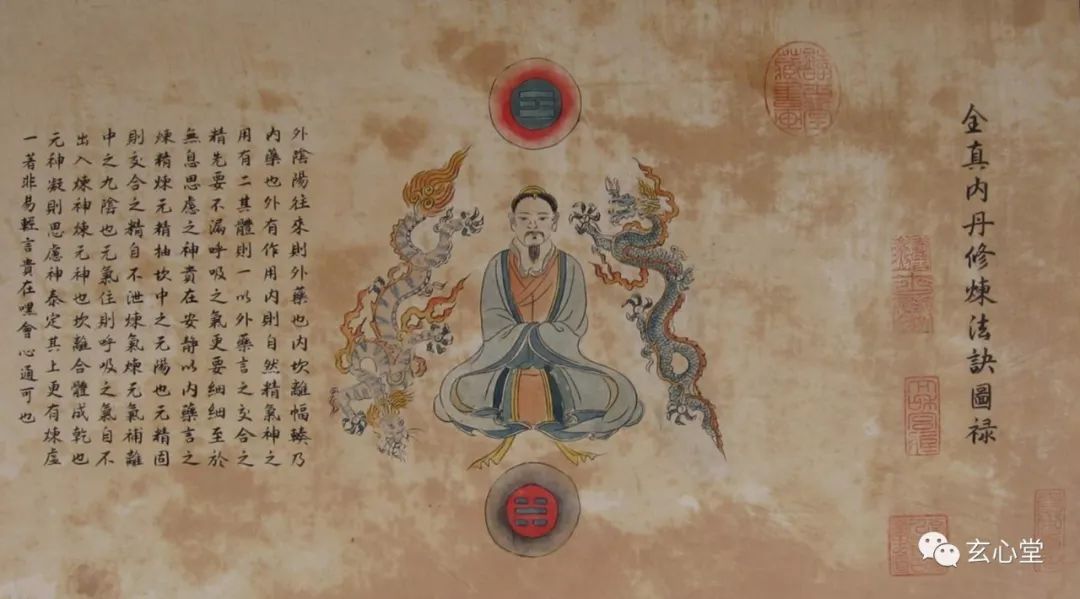 全真内丹修煉法訣圖禄
外陰陽往來則外藥也内坎離幅輳乃
内藥也外有作用内則自然精氣神之
用有二其體則一以外藥言之交合之
精先要不漏呼吸之氣更要細細至於
無息思慮之神貴在安静以内藥言之
煉精煉元精抽坎中之元陽也元精固
則交合之精自不泄煉氣煉元氣補離
中之九陰也元氣住則呼吸之氣自不
出入煉神煉元神也坎離合體成乾也
元神凝則思慮神泰定其上更有煉虛
一著非易輕言貴在嘿會心通可也
玄心堂